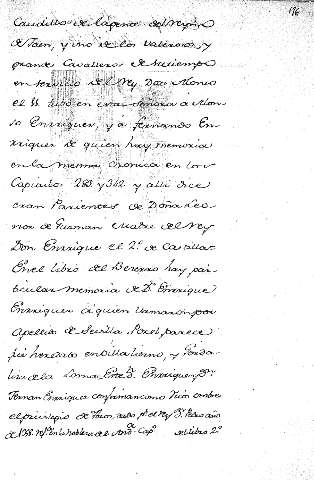 196
Caudillo de la gente del Reyno
de Jaen, y uno de los valerosos, y
grandes Cavalleros de su tiempo
en servicio del Rey Don Alonso
el XI. tubo en esta Señora a Alon-
so Enrriquez, y a Fernando En-
rriquez de quien hay memoria
en la mesma Cronica en los
Capitulos 283 y 342 y alli dice
eran Parientes de Doña Leo-
nor de Guzman Madre del Rey
Don Enrrique el 2º de Castilla
En el libro del Becerro hay par-
ticular memoria de Dn Enrrique
Enrriquez a quien llamaron por
Apellido de Sevilla Por el parece
fue heredado en Villalismo, y
de la Loma Este D. Enrrique y Dn
Fernan Enrriquez confirman como
el privilegio de del Rey Dn Pedro año
de nobleza del Andª Capº libro 2º